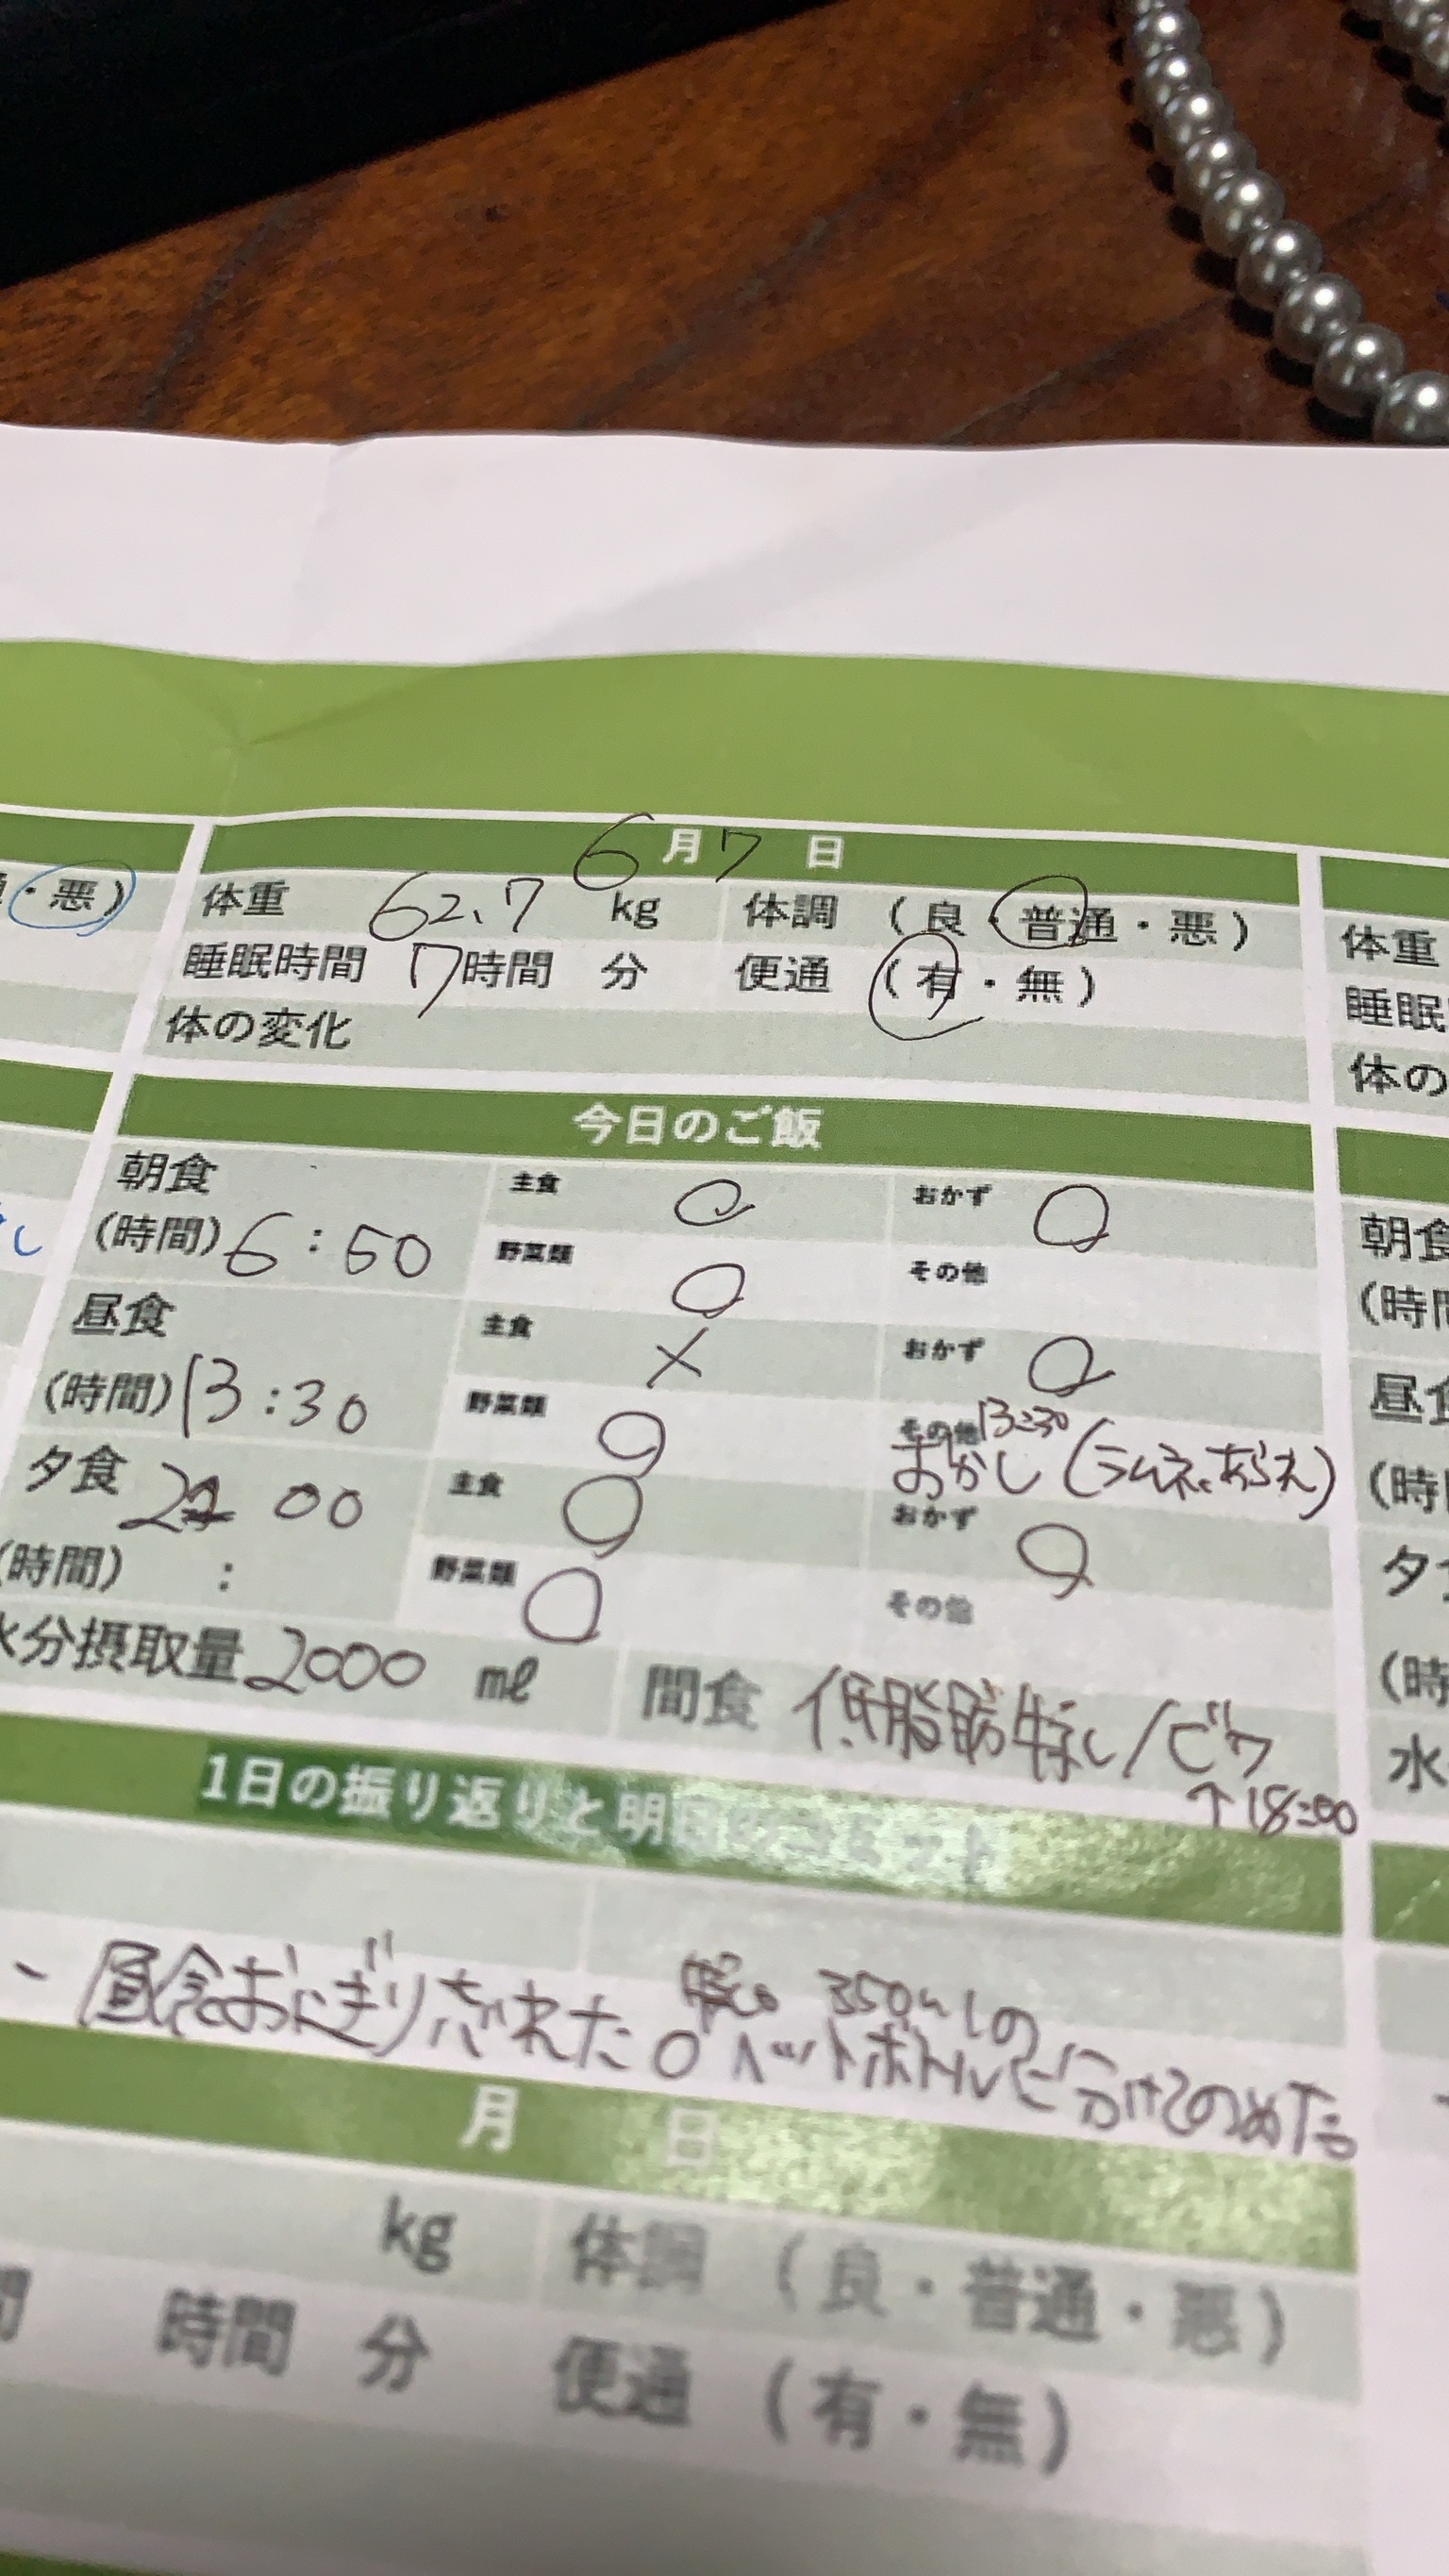 6月7日
・悪)
体重 62.7 kg 体調 (良・普通・悪)
体重
睡眠時間 7時間 分 便通 (有・無)
睡眠
体の変化
体の
今日のご飯
朝食
主食 ○ おかず ○
(時間) 6:50
野菜類 ○ その他
朝食
(時間
昼食
主食 × おかず ○
(時間) 13:30
野菜類 ○ その他 13:30
おかし (ラムネ、あられ)
昼食
(時間
夕食 00
主食 ○ おかず ○
(時間) :
野菜類 ○ その他
夕
(時
水分摂取量 2000 ml 間食 低脂肪 / ビワ
↑18:00
水
1日の振り返りと明日のコミット
昼食おにぎり 350mlの
ペットボトル 分けてのめた
月 日
kg 体調 (良・普通・悪)
間 時間 分 便通 (有・無)